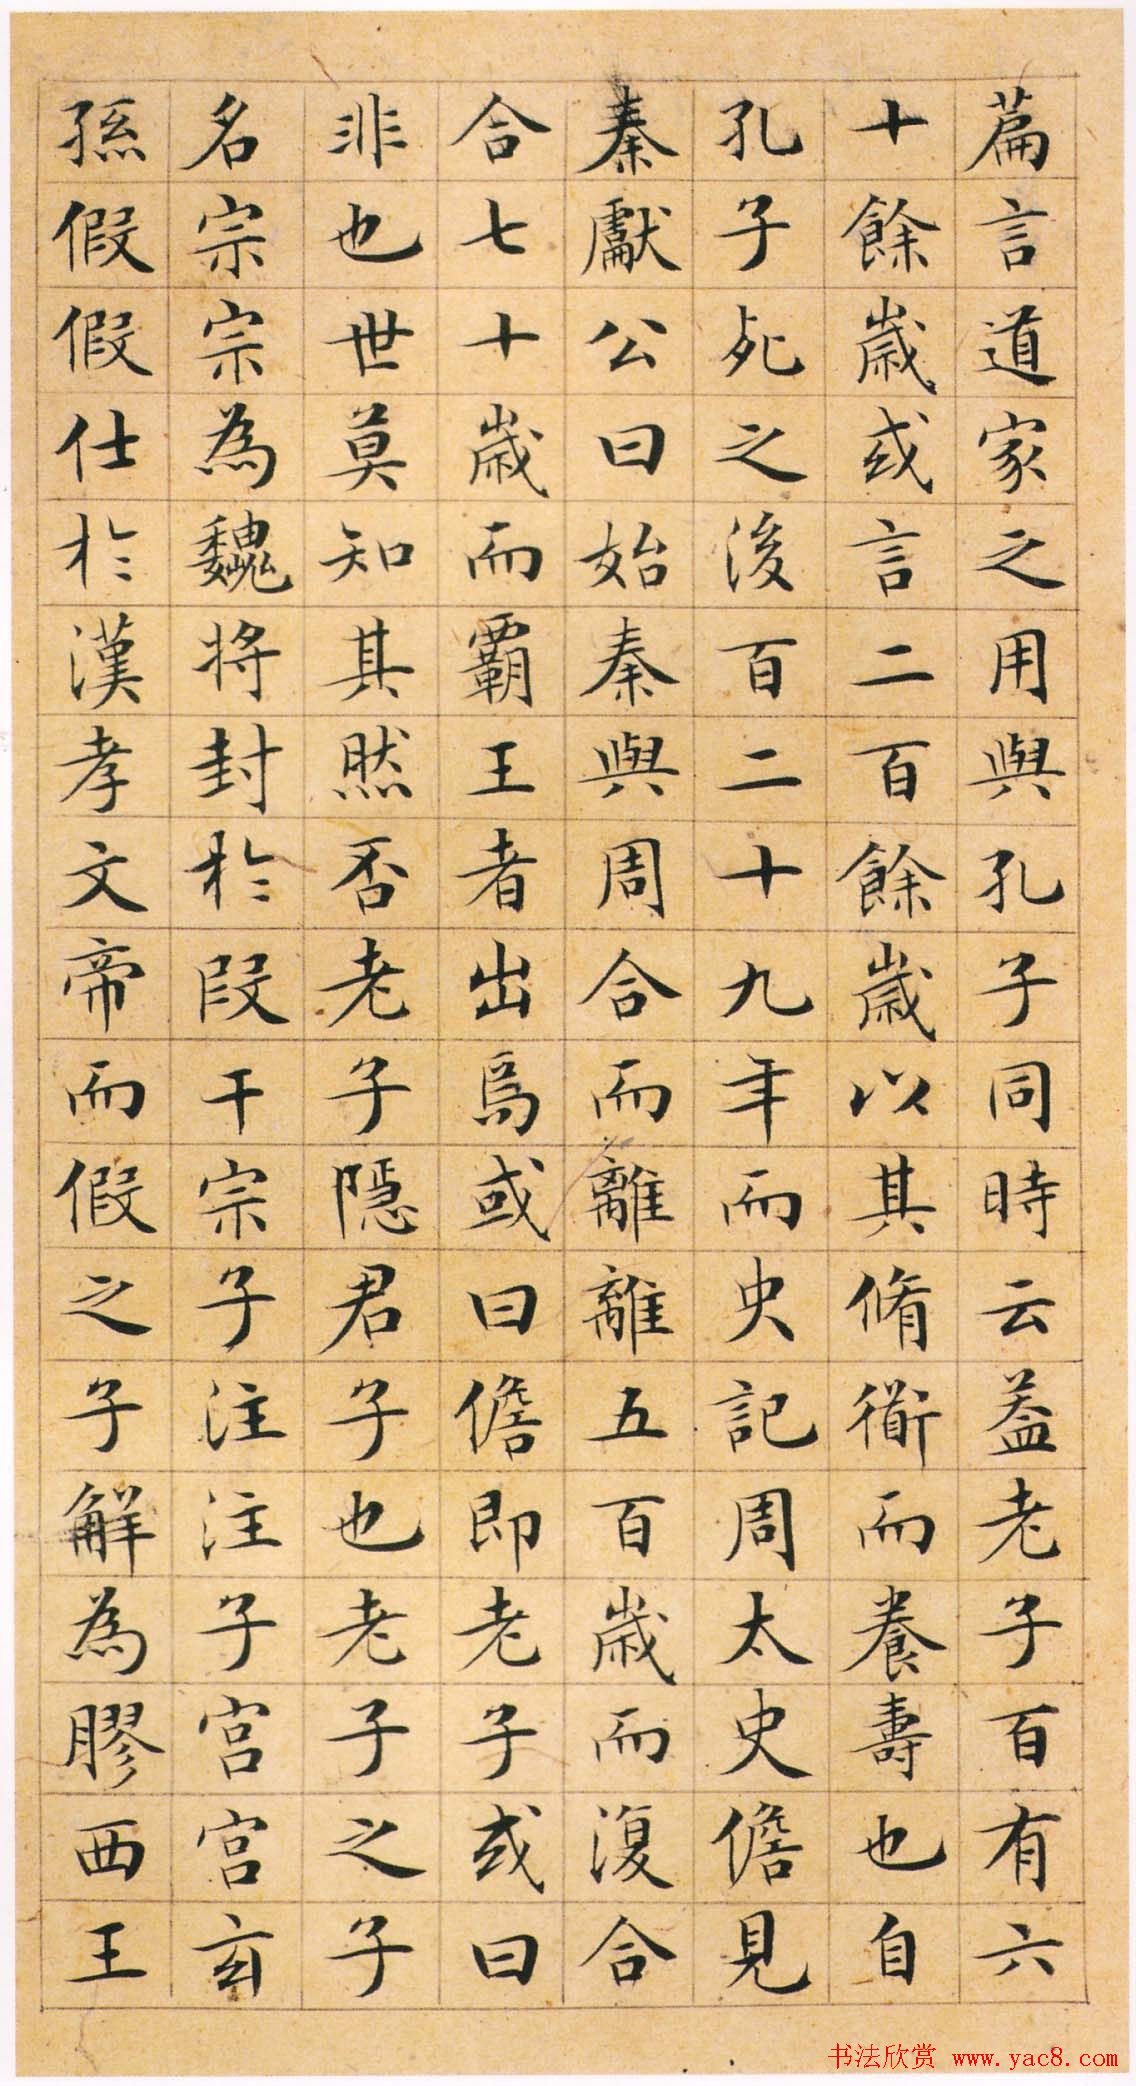 篇言道家之用與孔子同時云葢老子百有六
十餘歲或言二百餘歲以其脩衟而養壽也自
孔子死之後百二十九年而史記周太史儋見
秦獻公曰始秦與周合而離離五百歲而復合
合七十歲而霸王者出焉或曰儋即老子或曰
非也世莫知其然否老子隱君子也老子之子
名宗宗為魏將封於段干宗子注注子宫宫玄
孫假假仕於漢孝文帝而假之子解為膠西王
书法欣赏 www.yac8.com